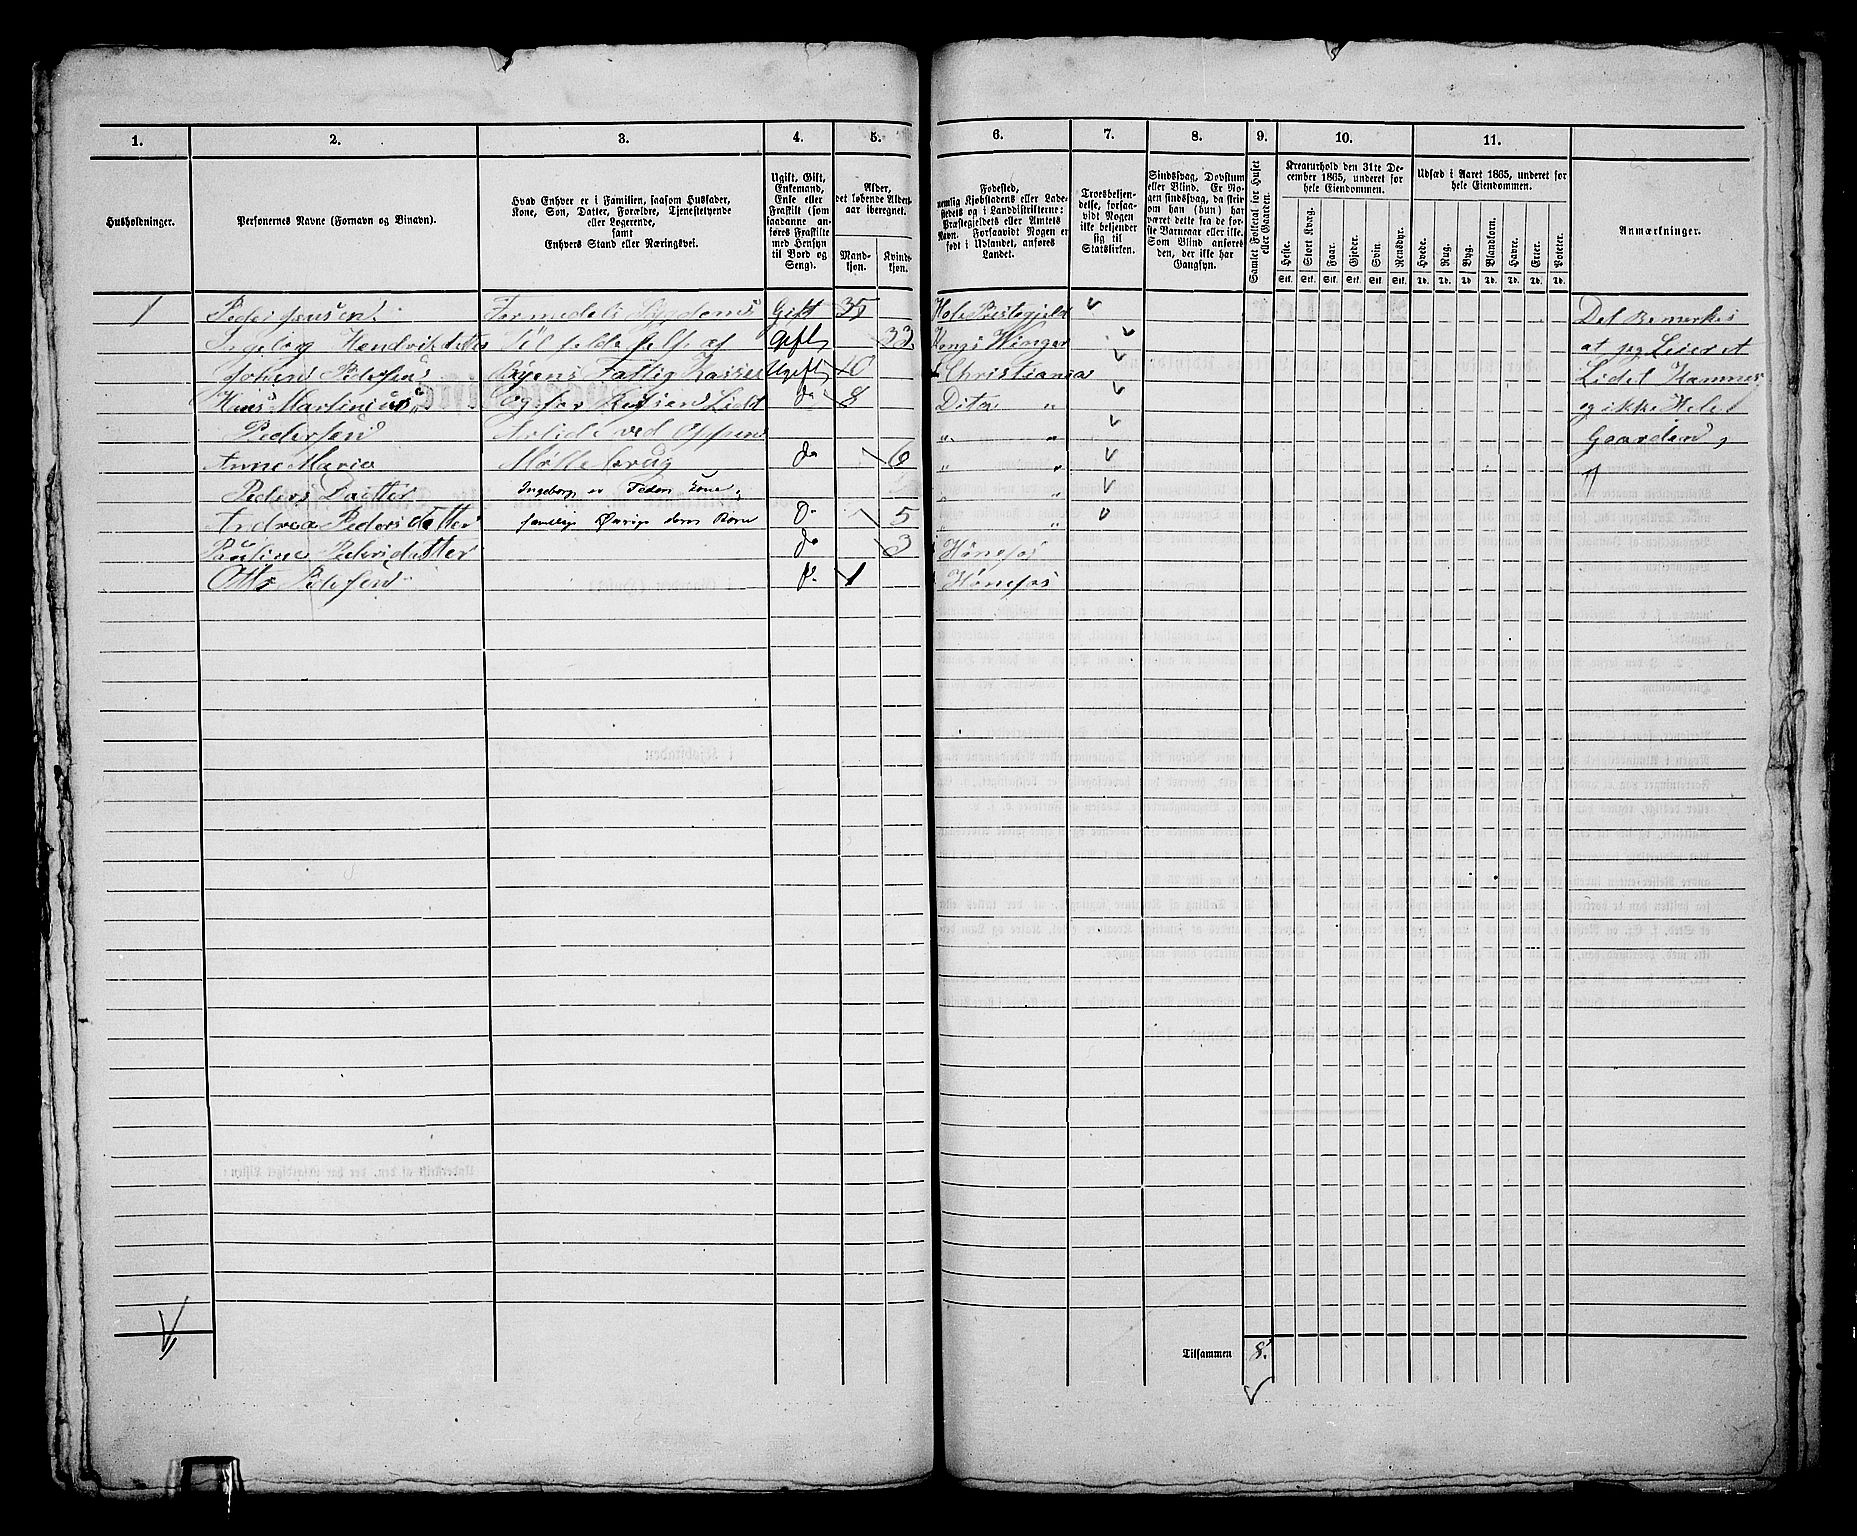 1. 2. 3. 4. 5. 6. 7. 8. 9. 10. 11.
Husholdninger.
Personernes Navne (Fornavn og Binavn).
Hvad Enhver er i Familien, saasom Husfader,
Kone, Søn, Datter, Forældre, Tjenestetyende
eller Logerende,
samt
Enhvers Stand eller Næringsvei.
Ugift, Gift,
Enkemand,
Enke eller
Fraskilt (som
saadanne an-
føres Fraskilte
med Hensyn
til Bord og
Seng).
Alder,
det løbende Alders-
aar iberegnet.
Mand-
kjøn.
Kvinde-
kjøn.
Fødested,
nemlig Kjøbstadens eller Lade-
stedets og i Landdistrikterne:
Præstegjeldets eller Amtets
Navn. Forsaavidt Nogen er
født i Udlandet, anføres
Landet.
Troesbekjen-
delse, forsaa-
vidt Nogen
ikke bekjender
sig til
Statskirken.
Sindssvag, Døvstum
eller Blind. Er No-
gen sindssvag, da skri-
ves om han (hun) har
været dette fra de før-
ste Barneaar eller ikke.
Som Blind anføres
den, der ikke har
Gangsyn.
Samlet Folketal for Huset
eller Gaarden.
Kreaturhold den 31te De-
cember 1865, underet for
hele Eiendommen.
Heste. Stort Kvæg. Faar. Gjeder. Svin. Rensdyr.
Stk. Stk. Stk. Stk. Stk. Stk.
Udsæd i Aaret 1865, underet for
hele Eiendommen.
Hvede. Rug. Byg. Blandkorn. Havre. Erter. Poteter.
Td. Td. Td. Td. Td. Td. Td.
Anmærkninger.
1 Peder Jensen Gift 35 Hole Prestegjeld Det Bemerkes
Ingeborg Hendriksdatter Gift 33 Kongs Winger at jeg Leier et
Johan Pedersen Byens Fattig Kasse Ugift 10 Christiania Lidet Kammer
Hans Martinius Og for Lidt do 8 Dito „ og ikke Hele
Pedersen Arbide ved „ „ Gaarden,
Anne Marie Møllebrug do 6 „ „
Peders Datter Ingeborg er Peders Kone, „ „
Andrea Pedersdatter Øvrige deres Børn Do 5 „ „
Pauline Pedersdatter do 3 Hønefos
Otto Pedersen do 1 Hønefos
Tilsammen 8.